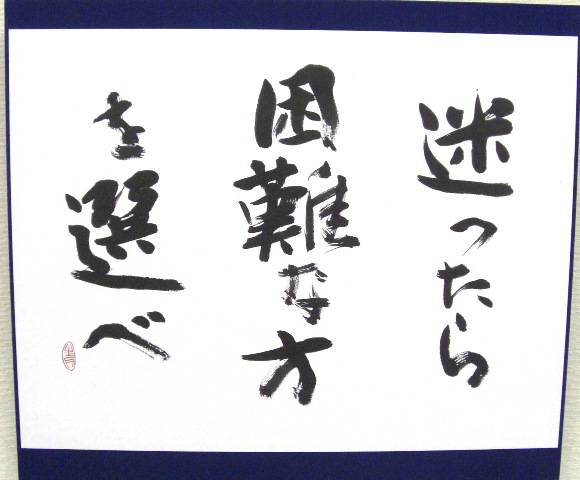 迷ったら
困難な方
を選べ